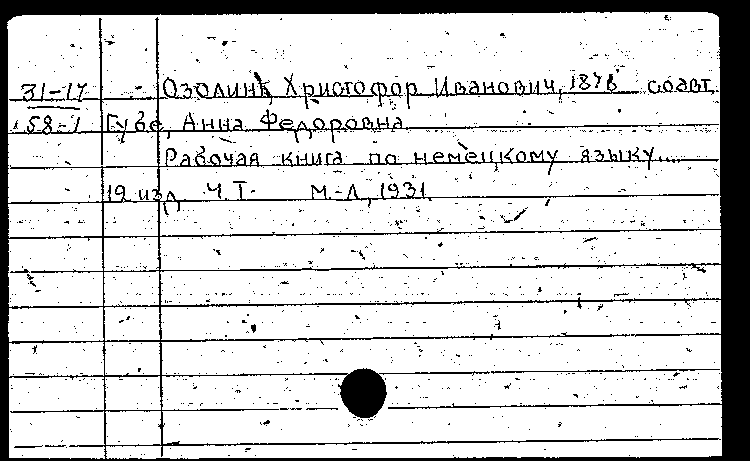 31-17 Озолинь, Христофор Иванович, 1878 соавт.
58-1 Губе, Анна Федоровна.
Рабочая книга по немецкому языку....
12 изд. Ч.Т. М.-Л., 1931.